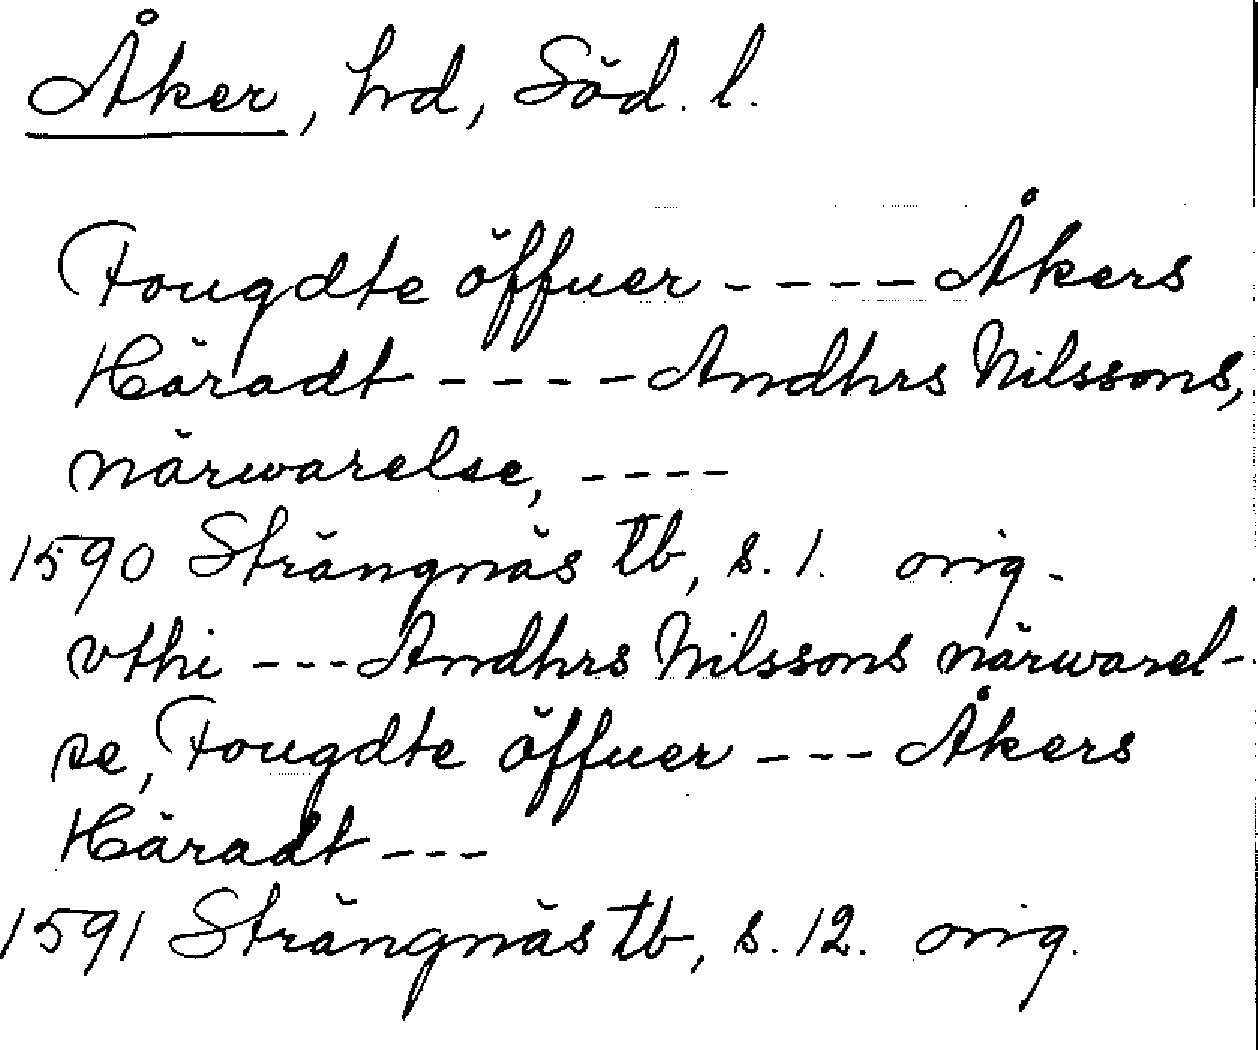 Åker, hd, Söd. l.
Fougdte öffuer - - - - Åkers
Häradt - - - - Andhrs Nilssons,
närwarelse, - - - -
1590 Strängnäs tb, s. 1. orig.
vthi - - - Andhrs Nilssons närwarel-
se, Fougdte öffuer - - - Åkers
Häradt - - -
1591 Strängnäs tb, s. 12. orig.